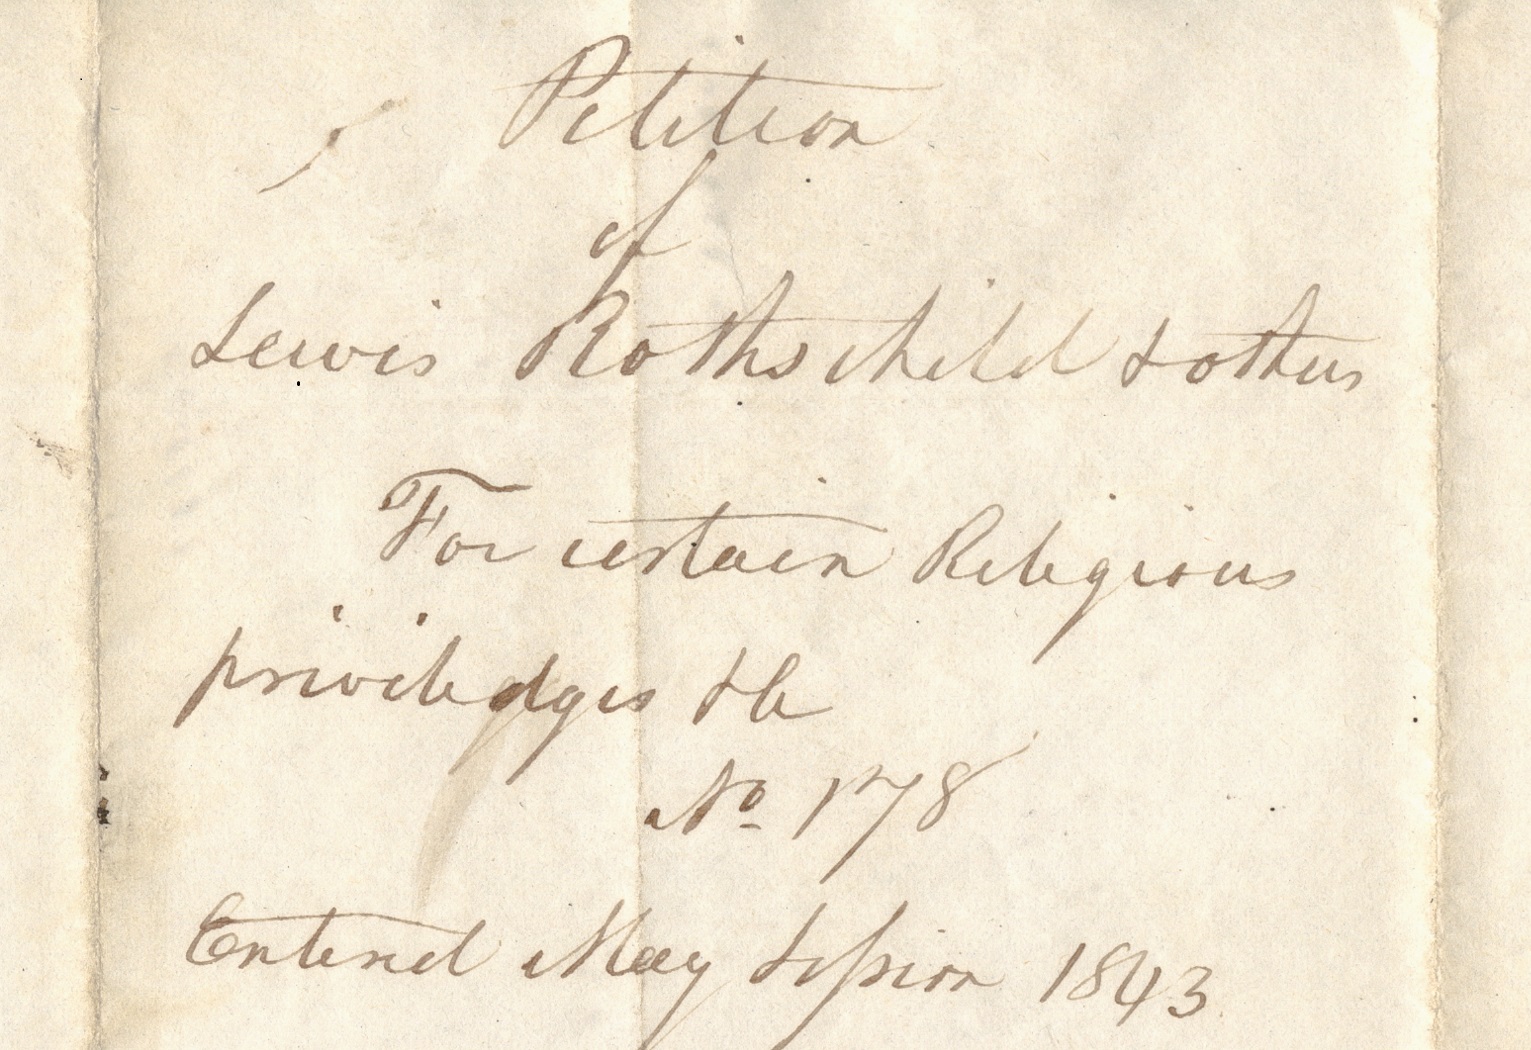 Petition
of
Lewis Rothschild & others
For certain Religious
priviledges &c
No 178
Entered May Session 1843